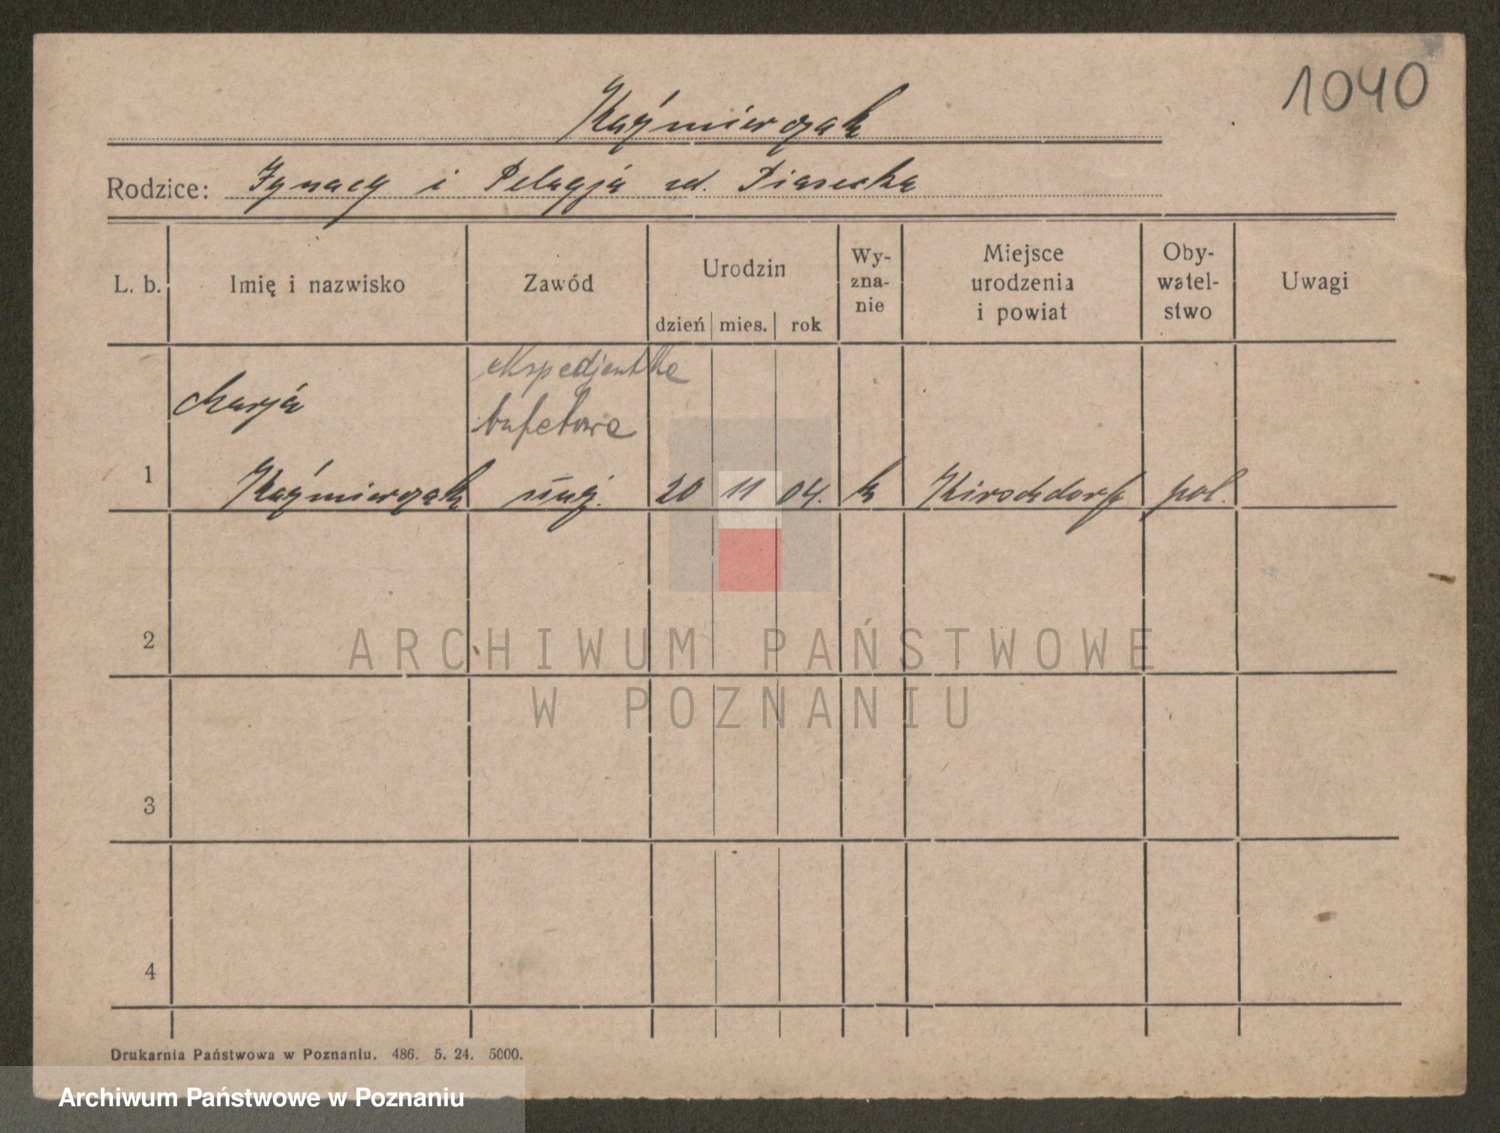 1040
Kaźmierczak
Rodzice: Ignacy i Pelagja zd. Piasecka
L. b. Imię i nazwisko Zawód Urodzin dzień mies. rok Wy-zna-nie Miejsce urodzenia i powiat Oby-watel-stwo Uwagi
Marja ekspedjentka
bufetowa
1 Kaźmierczak służ. 20 11 04. k Kirschdorf pol.
2
ARCHIWUM PAŃSTWOWE
W POZNANIU
3
4
Drukarnia Państwowa w Poznaniu. 486. 5. 24. 5000.
Archiwum Państwowe w Poznaniu